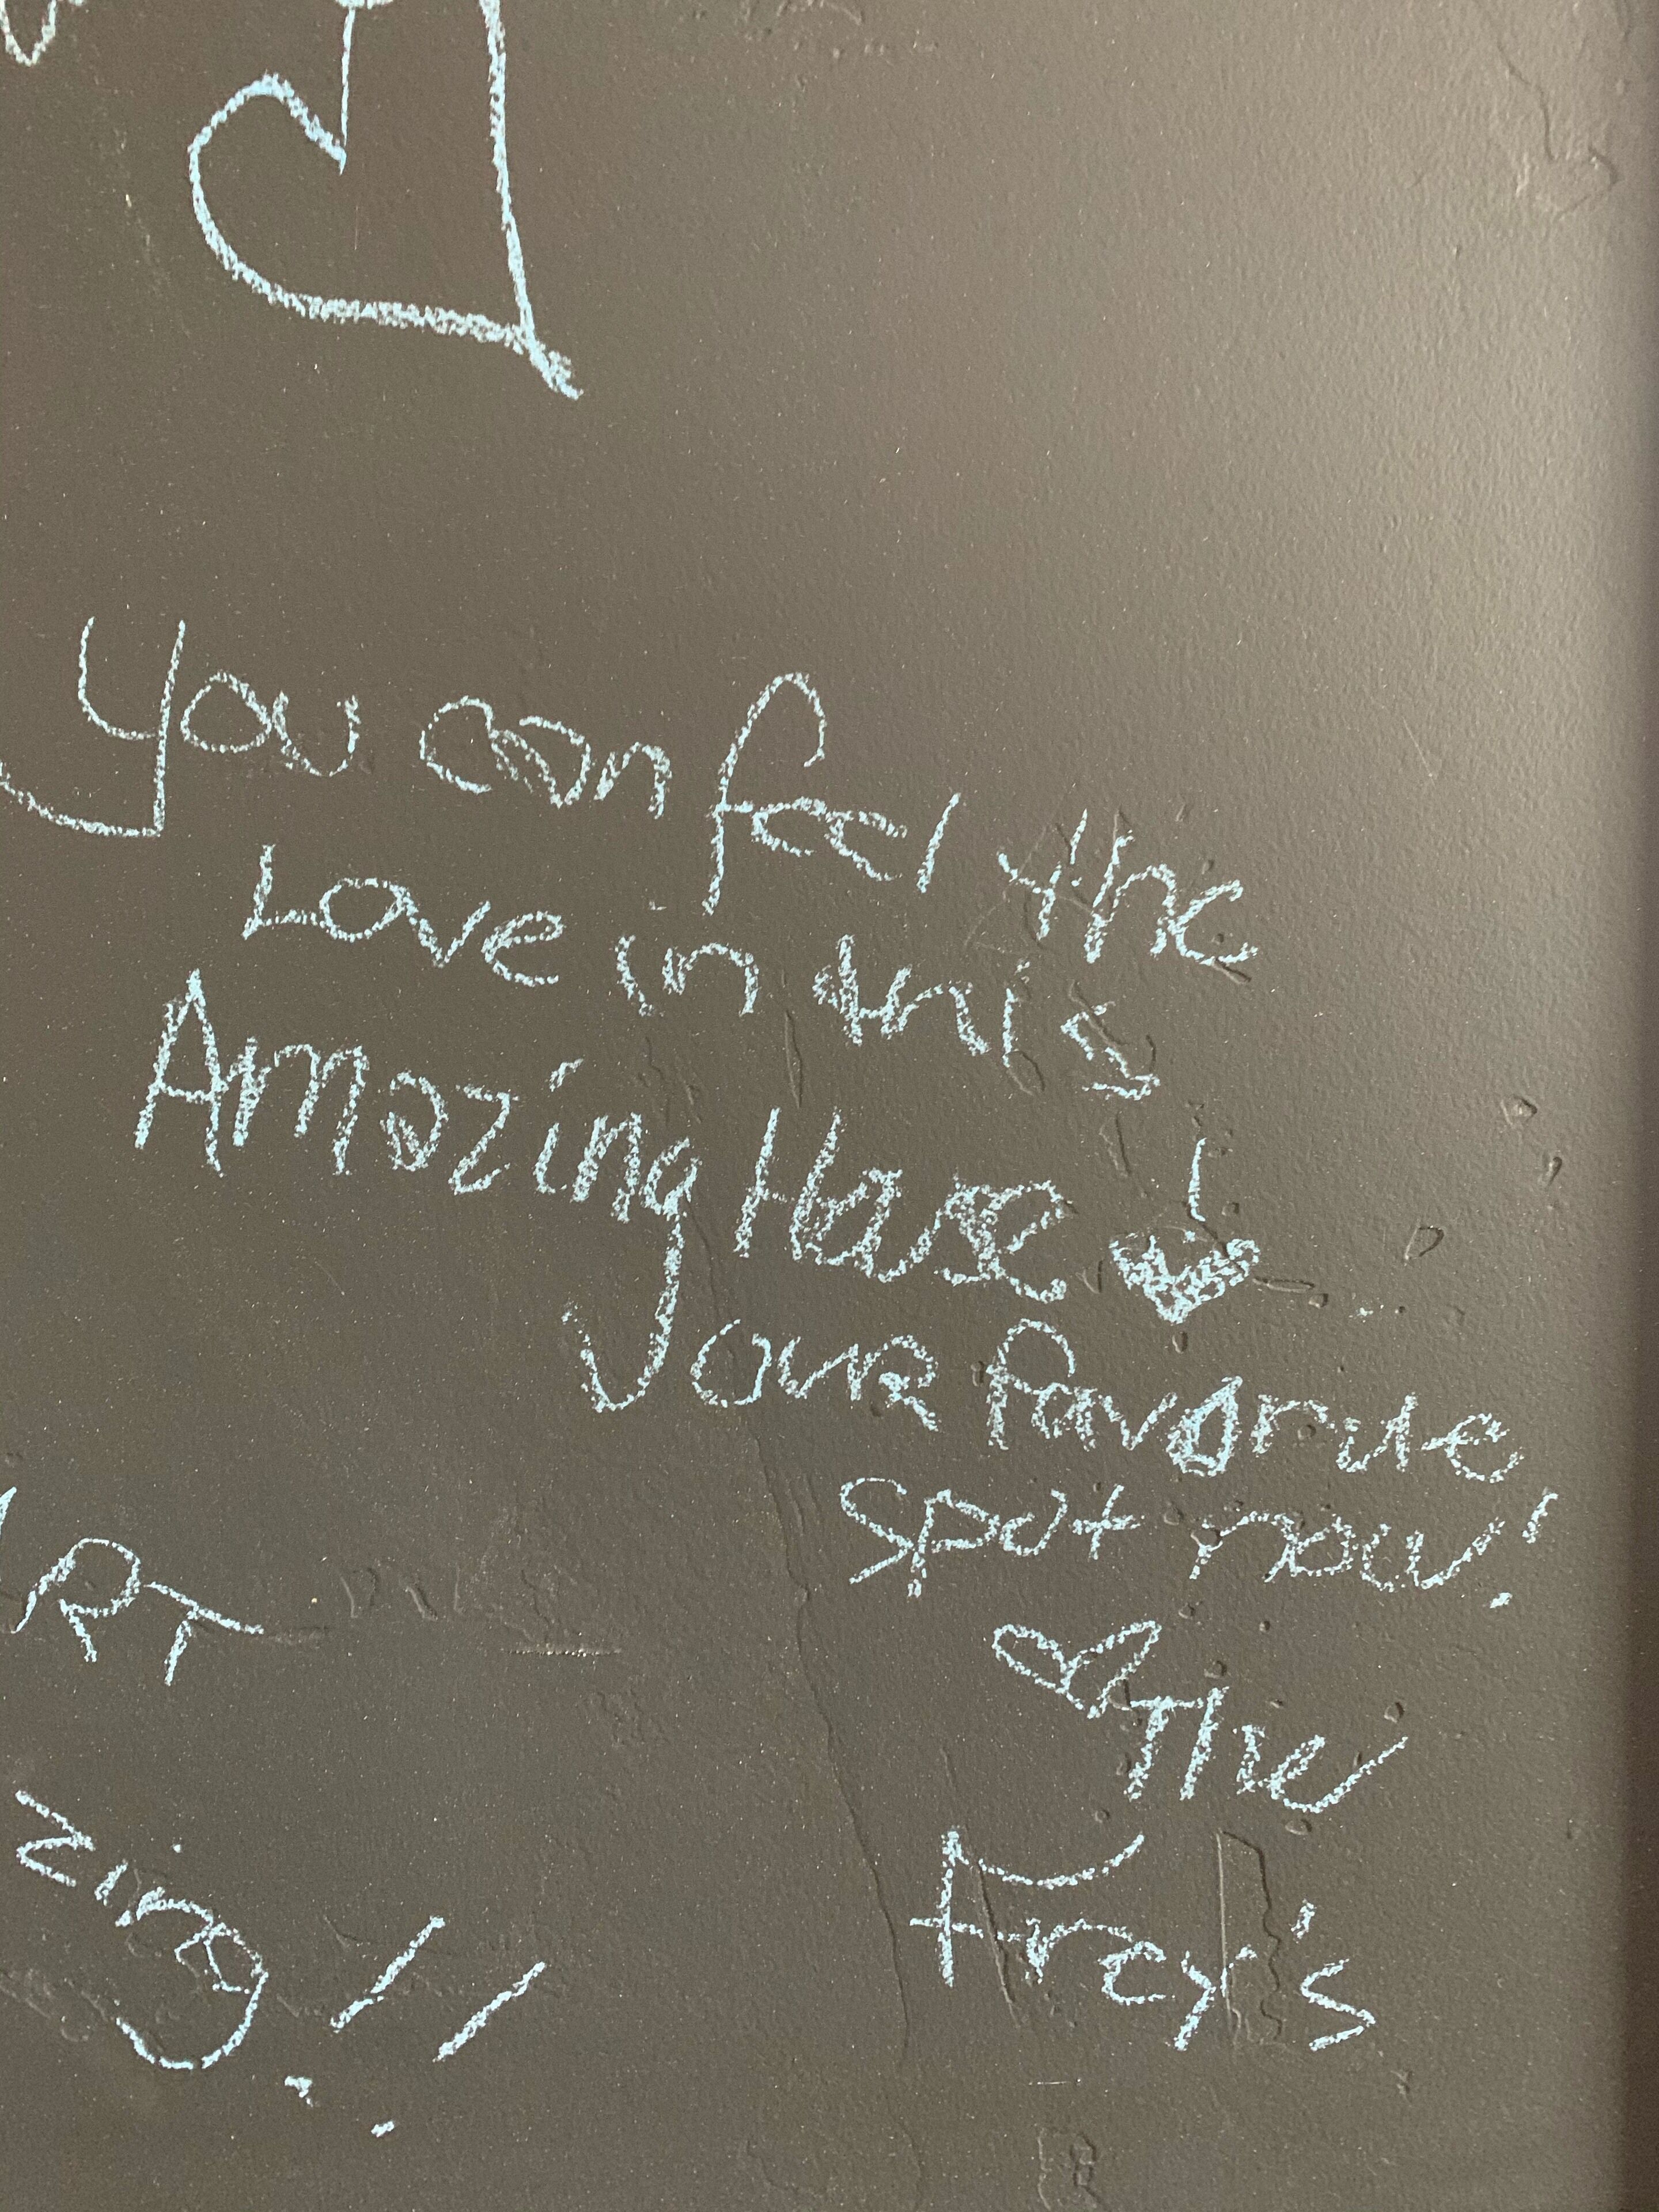 You can feel the
Love in this
Amazing House!
your favorite
spot now!
The
Frey's
RT
zing!!